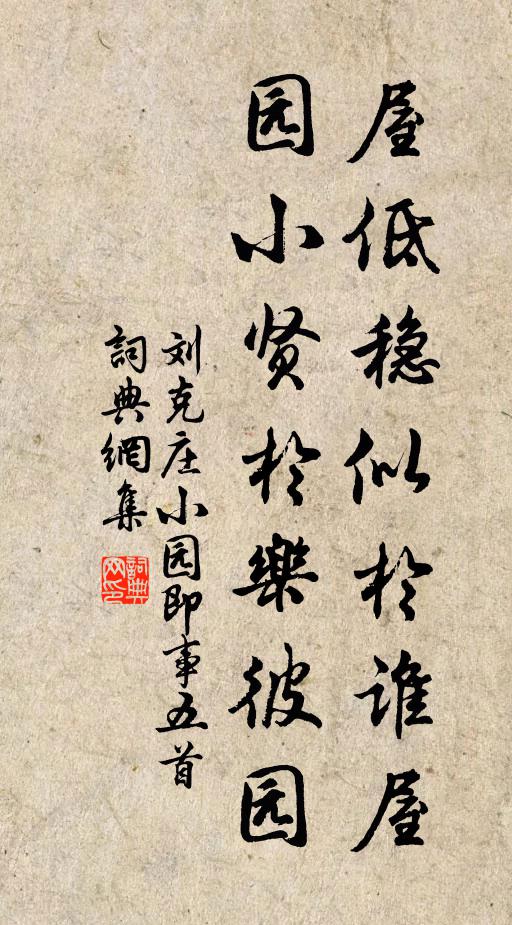 屋低稳似於谁屋
园小贤於樂彼园
刘克庄小园即事五首
詞典網集
詞典網印